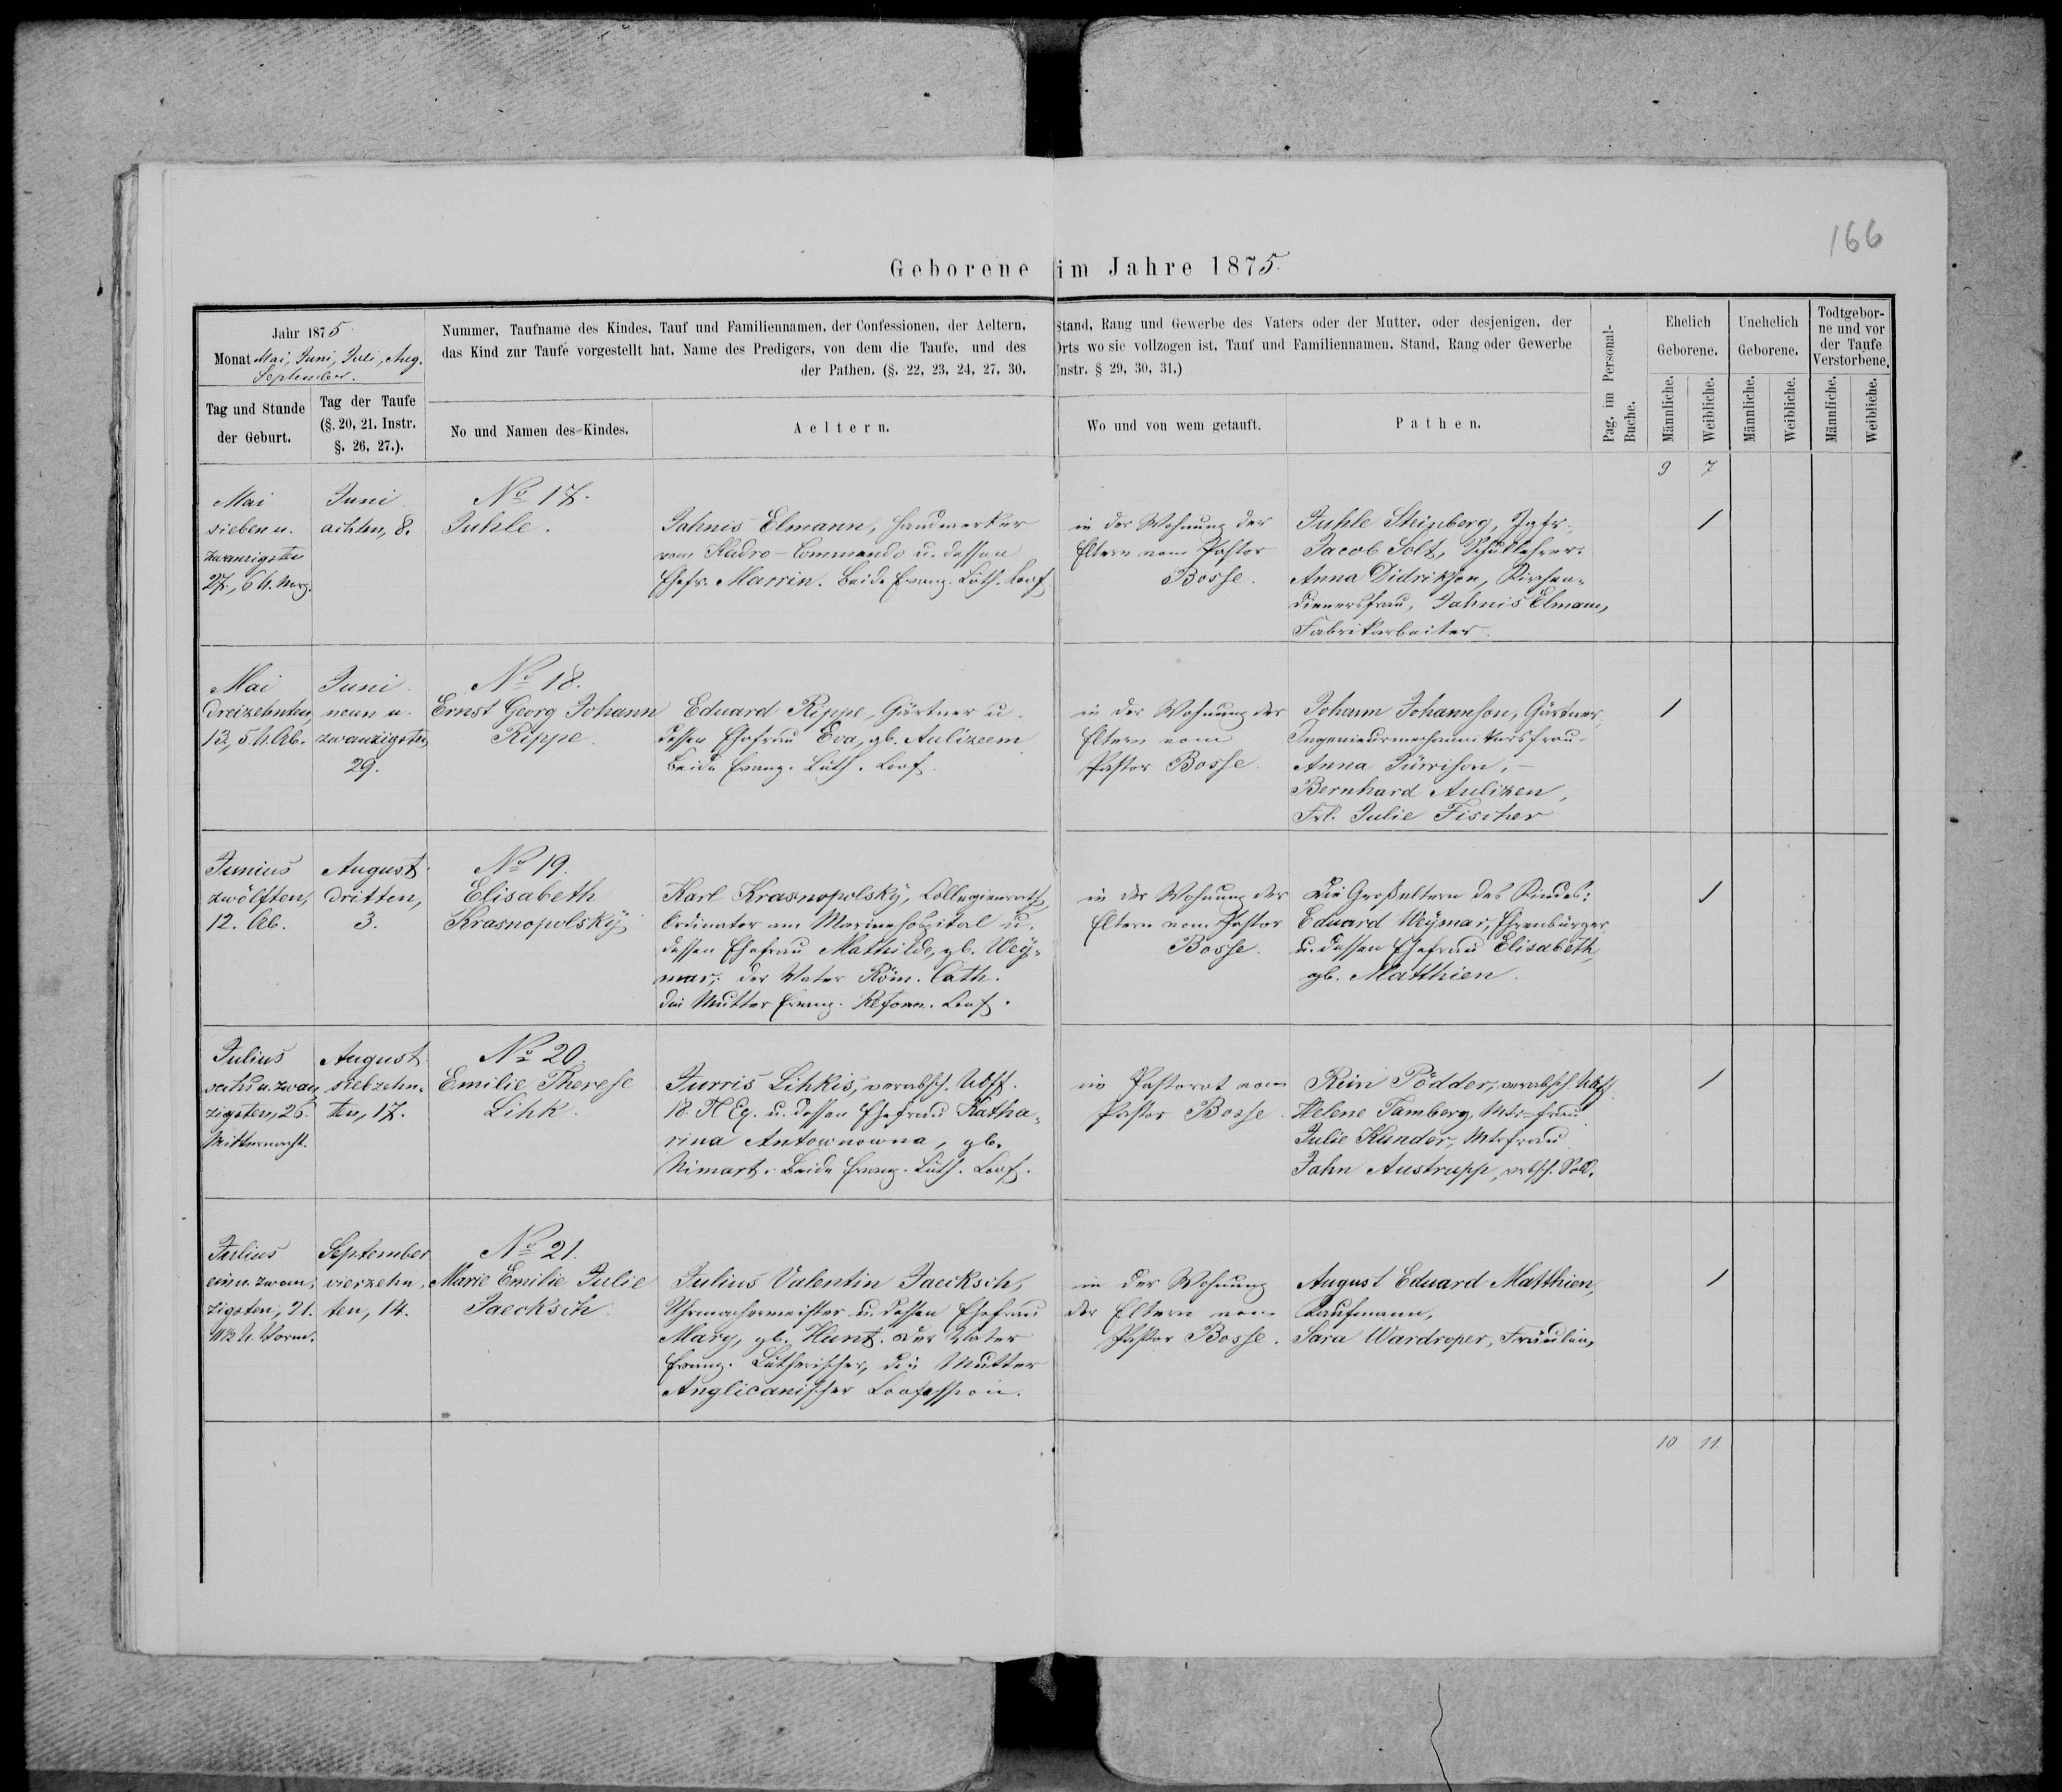 166
Geborene im Jahre 1875.
Jahr 1875
Monat Mai, Juni, Juli, Aug.
September.
Nummer, Taufname des Kindes, Tauf und Familiennamen, der Confessionen, der Aeltern, Stand, Rang und Gewerbe des Vaters oder der Mutter, oder desjenigen, der
das Kind zur Taufe vorgestellt hat, Name des Predigers, von dem die Taufe, und des Orts wo sie vollzogen ist, Tauf und Familiennamen, Stand, Rang oder Gewerbe
der Pathen. (§. 22, 23, 24, 27, 30. Instr. § 29, 30, 31.)
Tag und Stunde
der Geburt.
Tag der Taufe
(§. 20, 21. Instr.
§. 26, 27.).
No und Namen des Kindes.
Aeltern.
Wo und von wem getauft.
Pathen.
Pag. im Personal-
Buche.
Ehelich
Geborene.
Unehelich
Geborene.
Todtgebor-
ne und vor
der Taufe
Verstorbene.
Männliche.
Weibliche.
Männliche.
Weibliche.
Männliche.
Weibliche.
9 7
Mai
sieben u.
zwanzigsten
27., 6 U. Morg.
Juni
achten, 8.
No 17.
Juhle.
Jahnis Elmann, Handwerker
vom Kadro-Commando u. dessen
Ehefr. Marrin. Beide Evang. Luth. Conf.
in der Wohnung der
Eltern vom Pastor
Bosse.
Juhle Skinberg, Jgfr.
Jacob Solt, Schullehrer.
Anna Didrikson, Kirchen-
dienersfrau, Jahnis Elmann,
Fabrikarbeiter.
1
Mai
dreizehnten,
13., 5 U. Ab.
Juni
neun u.
zwanzigsten,
29.
No 18.
Ernst Georg Johann
Rippe.
Eduard Rippe, Gärtner u.
dessen Ehefrau Eva, gb. Aulizeem
Beide Evang. Luth. Conf.
in der Wohnung der
Eltern vom
Pastor Bosse.
Johann Johannson, Gärtner,
Ingenieurmechanikersfrau
Anna Jürrison, –
Bernhard Aulizen,
Frl. Julie Fischer
1
Junius
zwölften,
12. Ab.
August
dritten,
3.
No 19.
Elisabeth
Krasnopolsky
Karl Krasnopolsky, Collegienrath,
Ordinator am Marinehospital u.
dessen Ehefrau Mathilde, gb. Wey-
mar; der Vater Röm. Cath.
die Mutter Evang. Reform. Conf.
in der Wohnung der
Eltern vom Pastor
Bosse.
Die Großeltern des Kindes:
Eduard Weymar, Ehrenbürger
u. dessen Ehefrau Elisabeth,
gb. Matthien.
1
Julius
sechs u. zwan
zigsten, 26.
Mitternacht.
August
siebzehn-
ten, 17.
No 20.
Emilie Therese
Lihk.
Jurris Lihkis, verabsch. Uoff.
18. Fl. Eq. u. dessen Ehefrau Katha-
rina Antownowna, gb.
Nimart. Beide Evang. Luth. Conf.
im Pastorat vom
Pastor Bosse.
Rein Pödder, verabsch. Uoff.
Helene Tamberg, Mtr-frau
Julie Kunder, Mtrfrau
Jahn Austrupp, vrbsch. Sold.
1
Julius
ein u. zwan-
zigsten, 21.
11½ U. Vorm.
September
vierzehn-
ten, 14.
No 21.
Marie Emilie Julie
Jaecksch.
Julius Valentin Jaecksch,
Uhrmachermeister u. dessen Ehefrau
Mary, gb. Hunt. Der Vater
Evang. Lutherischer, die Mutter
Anglicanischer Confession.
in der Wohnung
der Eltern vom
Pastor Bosse.
August Eduard Matthien,
Kaufmann,
Sara Wardroper, Fräulein,
1
10 11